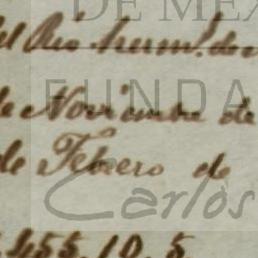 DE MÉX
el Rio herm.º de
FUNDA
de Noviembre de
de Febrero de
Carlos
455,10.5